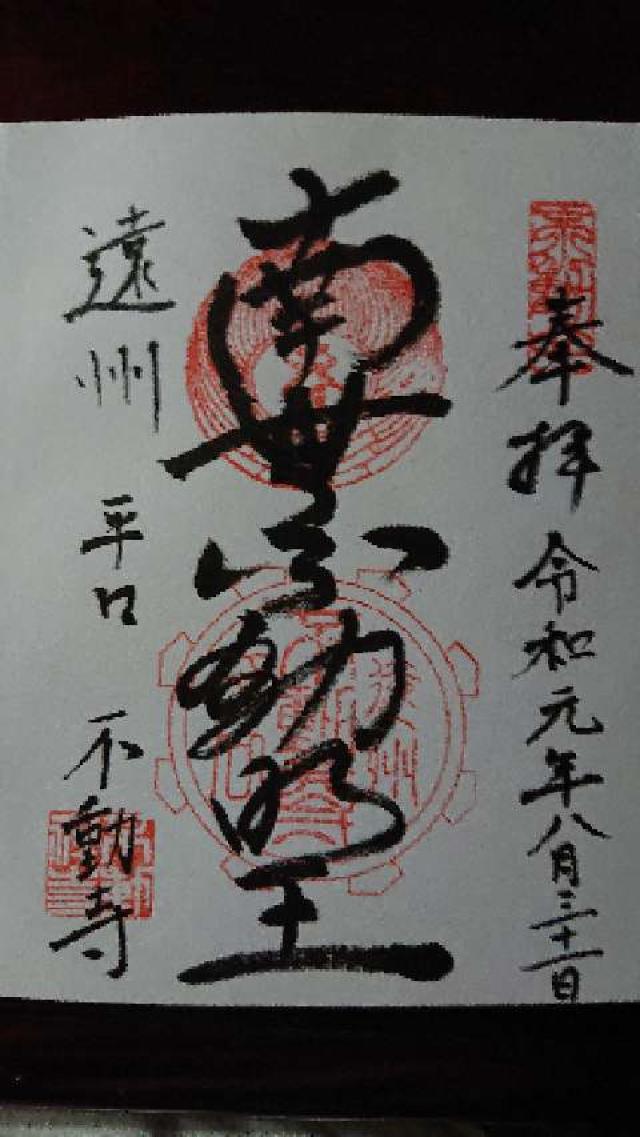 奉拝 令和元年八月三十一日
南無不動明王
遠州 平口 不動寺